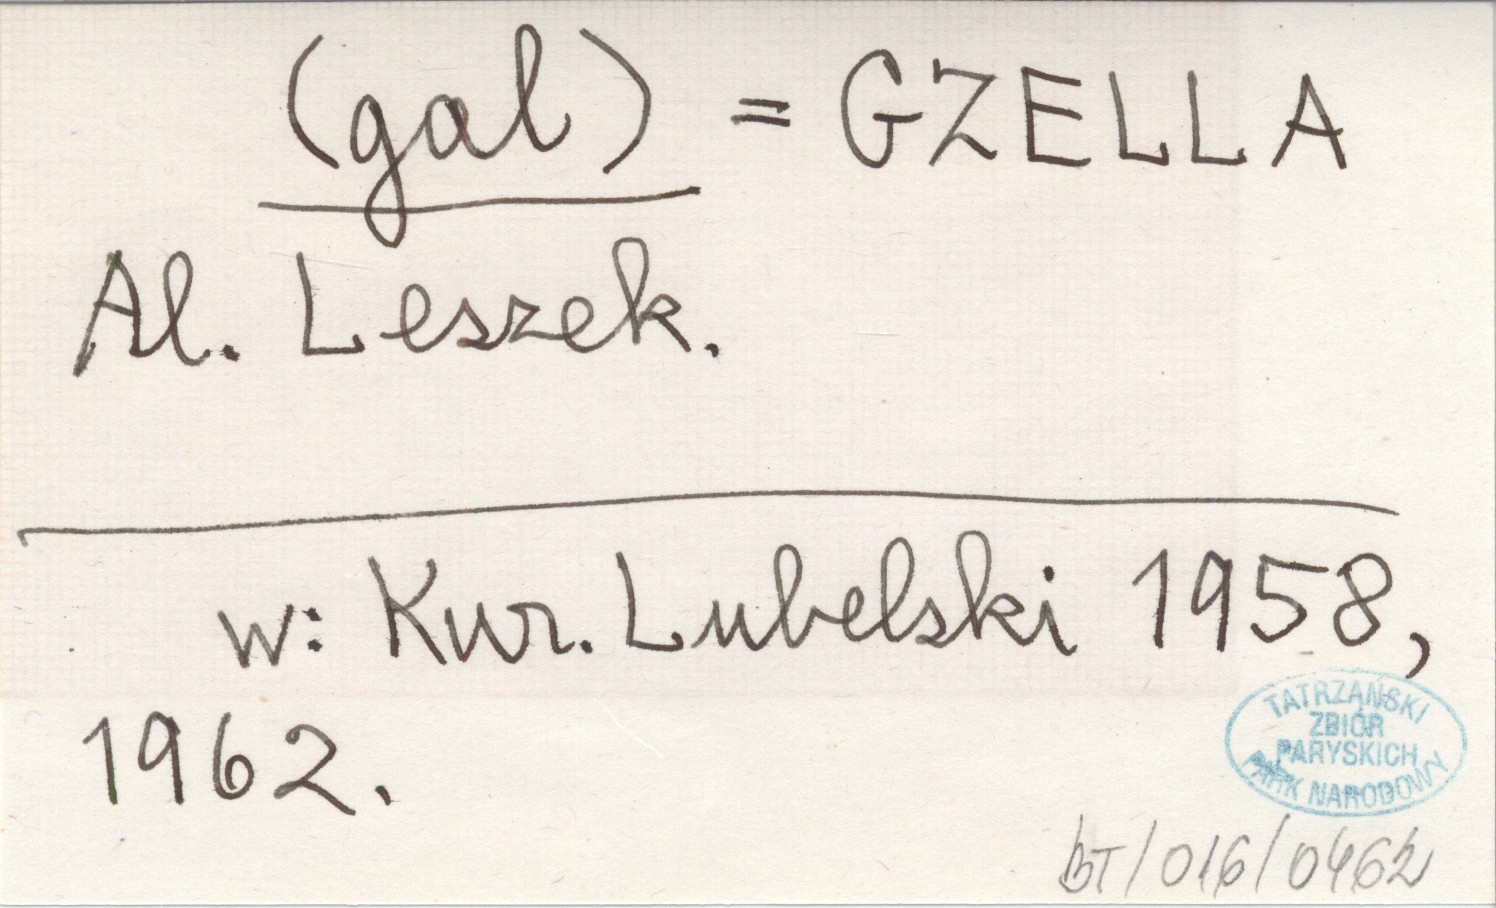 (gal) = GZELLA
Al. Leszek.
w: Kur. Lubelski 1958,
1962.
TATRZAŃSKI
ZBIÓR
PARYSKICH
PARK NARODOWY
BT/016/0462